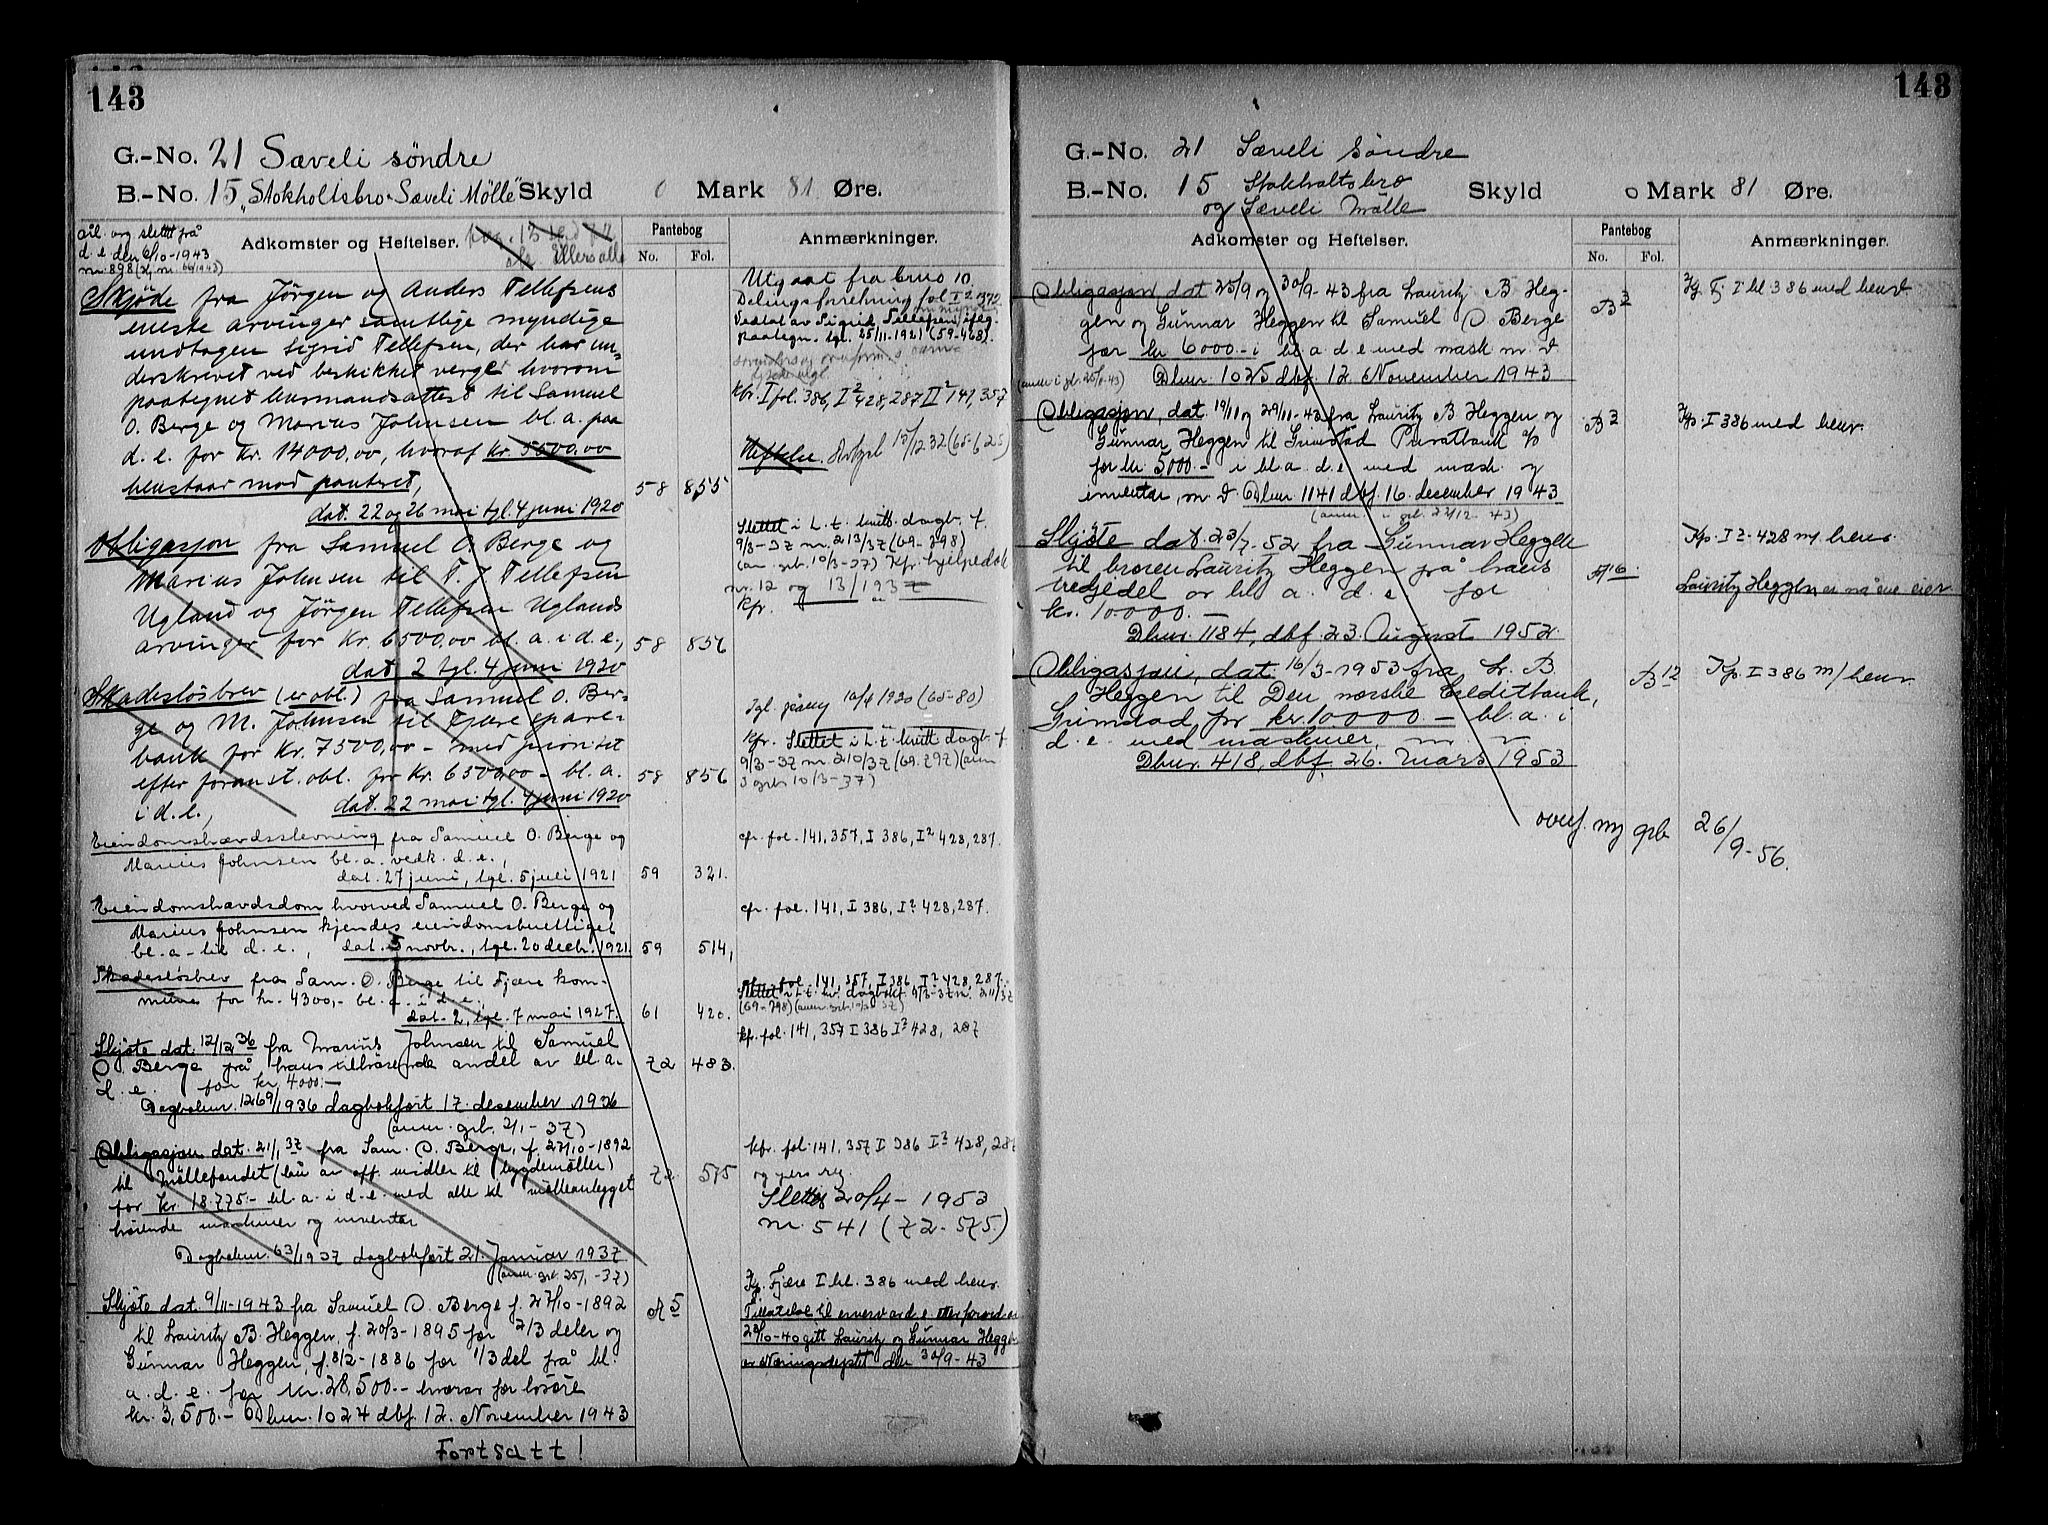 143
G.-No. 21 Sæveli söndre
B.-No. 15 „Stokholtsbro & Sæveli Mölle" Skyld 0 Mark 81 Øre.
slettet frå
d. e. den 6/10-1943
nr. 898
Adkomster og Heftelser.
Pantebog
No. Fol.
Anmærkninger.
Skjöde fra Jörgen og Anders Tellefsens
eneste arvinger samtlige myndige
undtagen Sigrid Tellefsen, der har un-
derskrevet ved beskikket verge hvorom
paategnet husmandsattest til Samuel
O. Berge og Marius Johnsen bl. a. paa
d. e. for Kr. 14000,00, hvoraf kr. 5600.00
henstaar mod panteret,
dat. 22 og 26 mai tgl. 4 juni 1920
58 855
Utgaat fra bruo 10.
Delingsforretning fol I² 272
Vedtat av Sigrid Tellefsen ifølg.
paategn. tgl. 25/11-1921 (59-468).
kfr. I fol. 386, I² 428, 287 II² 141, 357
Heftelse. 15/12 32 (65-625)
Obligasjon fra Samuel O. Berge og
Marius Johnsen til T. J. Tellefsen
Ugland og Jörgen Tellefsen Uglands
arvinger for Kr. 6500,00 bl. a. i d. e.,
dat. 2 tgl. 4 juni 1920
58 856
Slettet i L. t. kutt. dagb. f.
9/3-37 nr. 213/37 (69-798)
(an. grb. 10/3-37) Kfr. hjelpedok
nr. 12 og 13/1937
kfr.
Skadeslösbrev (er obl.) fra Samuel O. Ber-
ge og M. Johnsen til Fjære spare-
bank for Kr. 7500,00 - med prioritet
efter foranst. obl. for Kr. 6500,00 - bl. a.
i d. e.,
dat. 22 mai tgl. 4 juni 1920
58 856
Tgl. 10/4 1920 (65-80)
kfr. Slettet i L. t. kutt dagb. f.
9/3-37 nr. 210/37 (69.797) (anm
i grb 10/3-37)
Eiendomshævdsstevning fra Samuel O. Berge og
Marius Johnsen bl. a. vedk. d. e.,
dat. 27 juni, tgl. 5 juli 1921
59 321.
cfr. fol. 141, 357, I 386, I² 428, 287.
Eiendomshævdsdom hvorved Samuel O. Berge og
Marius Johnsen kjendes eiendomsberettiget
bl. a - til d. e., dat. 5 novbr., tgl. 20 decbr. 1921.
59 514,
cfr. fol. 141, I 386, I² 428, 287.
Skadeslösbrev fra Sam. O. Berge til Fjære kom-
mune for kr. 4300,- bl. a. i d. e.
dat. 2, tgl. 7 mai 1927.
61 420.
fol. 141, 357, I 386 I² 428, 287.
Slettet i L. t. kr. dagbokf. 9/3-37 nr. 211/37
(69-798) (anm grb. 10/3 37)
Skjöte dat 12/12 36 fra Marius Johnsen til Samuel
O. Berge frå hans tilhörende andel av bl. a.
d. e. for kr. 4000.-
Dagboknr. 1269/1936 dagbokfört 17. desember 1936
(anm. grb. 2/1-37)
72 483.
kfr. fol. 141, 357 I 386 I² 428, 287
Obligasjon dat. 21/1 37 fra Sam. O. Berge, f. 27/10-1892
til Möllefondet (lån av off. midler til bygdemöller)
for kr. 18.775.- bl. a. i d. e. med alle til mölleanlegget
hörende maskiner og inventar
Dagboknr. 63/1937 dagbokfört 21. Januar 1937
(anm. grb. 25/1-37)
72 575
kfr. fol. 141, 357 I 386 I² 428, 287
Slettes 20/4-1953
nr. 541 (72-575)
Skjöte dat. 9/11-1943 fra Samuel O. Berge f. 27/10-1892
til Lauritz B. Heggen, f. 20/3-1895 for 2/3 deler og
Gunnar Heggen, f. 8/2-1886 for 1/3 del frå bl.
a. d. e. for kr. 28,500.- hvorav for lösöre
kr. 3,500.- Dbnr. 1024 dbf. 12. November 1943
A 5
Kfr. Fjære I bl. 386 med henv.
Tillatelse til erverv av d. e. etter forordn. av
28/10-40 gitt Lauritz og Gunnar Heggen
av Næringsdeptet den 30/9-43
Fortsatt!
143
G.-No. 21 Sæveli Söndre
B.-No. 15 Stokholtsbro Skyld 0 Mark 81 Øre.
og Sæveli Mölle
Adkomster og Heftelser.
Pantebog
No. Fol.
Anmærkninger.
Obligasjon dat 25/9 og 30/9-43 fra Lauritz B. Heg-
gen og Gunnar Heggen til Samuel O. Berge
for kr 6000.- i bl a. d e med mask m. v
(anm i gb. 25/11-43) Dbnr. 1025 dbf. 12. November 1943
B 3
Kfr. Fj I bl 386 med henv.
Obligasjon, dat. 19/11 og 29/11-43 fra Lauritz B Heggen og
Gunnar Heggen til Grimstad Privatbank %
for kr 5000.- i bl. a d e med mask og
inventar, m. v. Dbnr. 1141 dbf. 16. desember 1943
(anm. i grb. 22/12-43)
B 3
Kfr. I 386 med henv.
Skjöte dat. 23/7-52 fra Gunnar Heggen
til broren Lauritz Heggen frå hans
tredjedel av bl. a. d. e. for
kr. 10000.-
Dbnr. 1184, dbf. 23. August 1952
A 16
Kfr. I²-428 m/ henv.
Lauritz Heggen er nå ene eier
Obligasjon, dat. 16/3-1953 fra L. B.
Heggen til Den norske Creditbank,
Grimstad for kr. 10000- bl. a. i
d. e. med maskiner, m. v
Dbnr. 418, dbf. 26. mars 1953
B 12
Kfr. I 386 m/ henv
overf. ny grb 26/9-56.